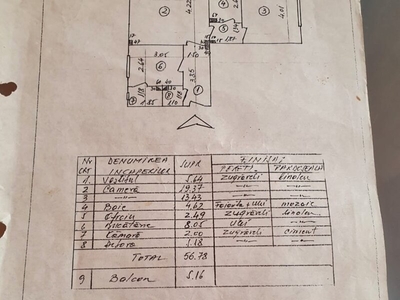 2 4.22 4 3 4.01
5
1.87
3.05 1.50
2.64 6 3.35
1.18 1.18
7 1.85 8 1.10 1
Nr crt DENUMIREA INCAPERILOR SUPR FINISAJ
PERETI PARDOSEALA
1. Vestibul 5.64 zugraveli linoleu
2 Camera 19.37 —„— —„—
3 —„— 13.43 —„— —„—
4 Baie 4.62 Faianta+Ulei mozaic
5 Oficiu 2.49 zugraveli linoleu
6 Bucatarie 8.05 Ulei —„—
7 Camara 2.00 zugraveli ciment
8 Debara 1.18 —„— —„—
TOTAL 56.78
9 Balcon 5.16